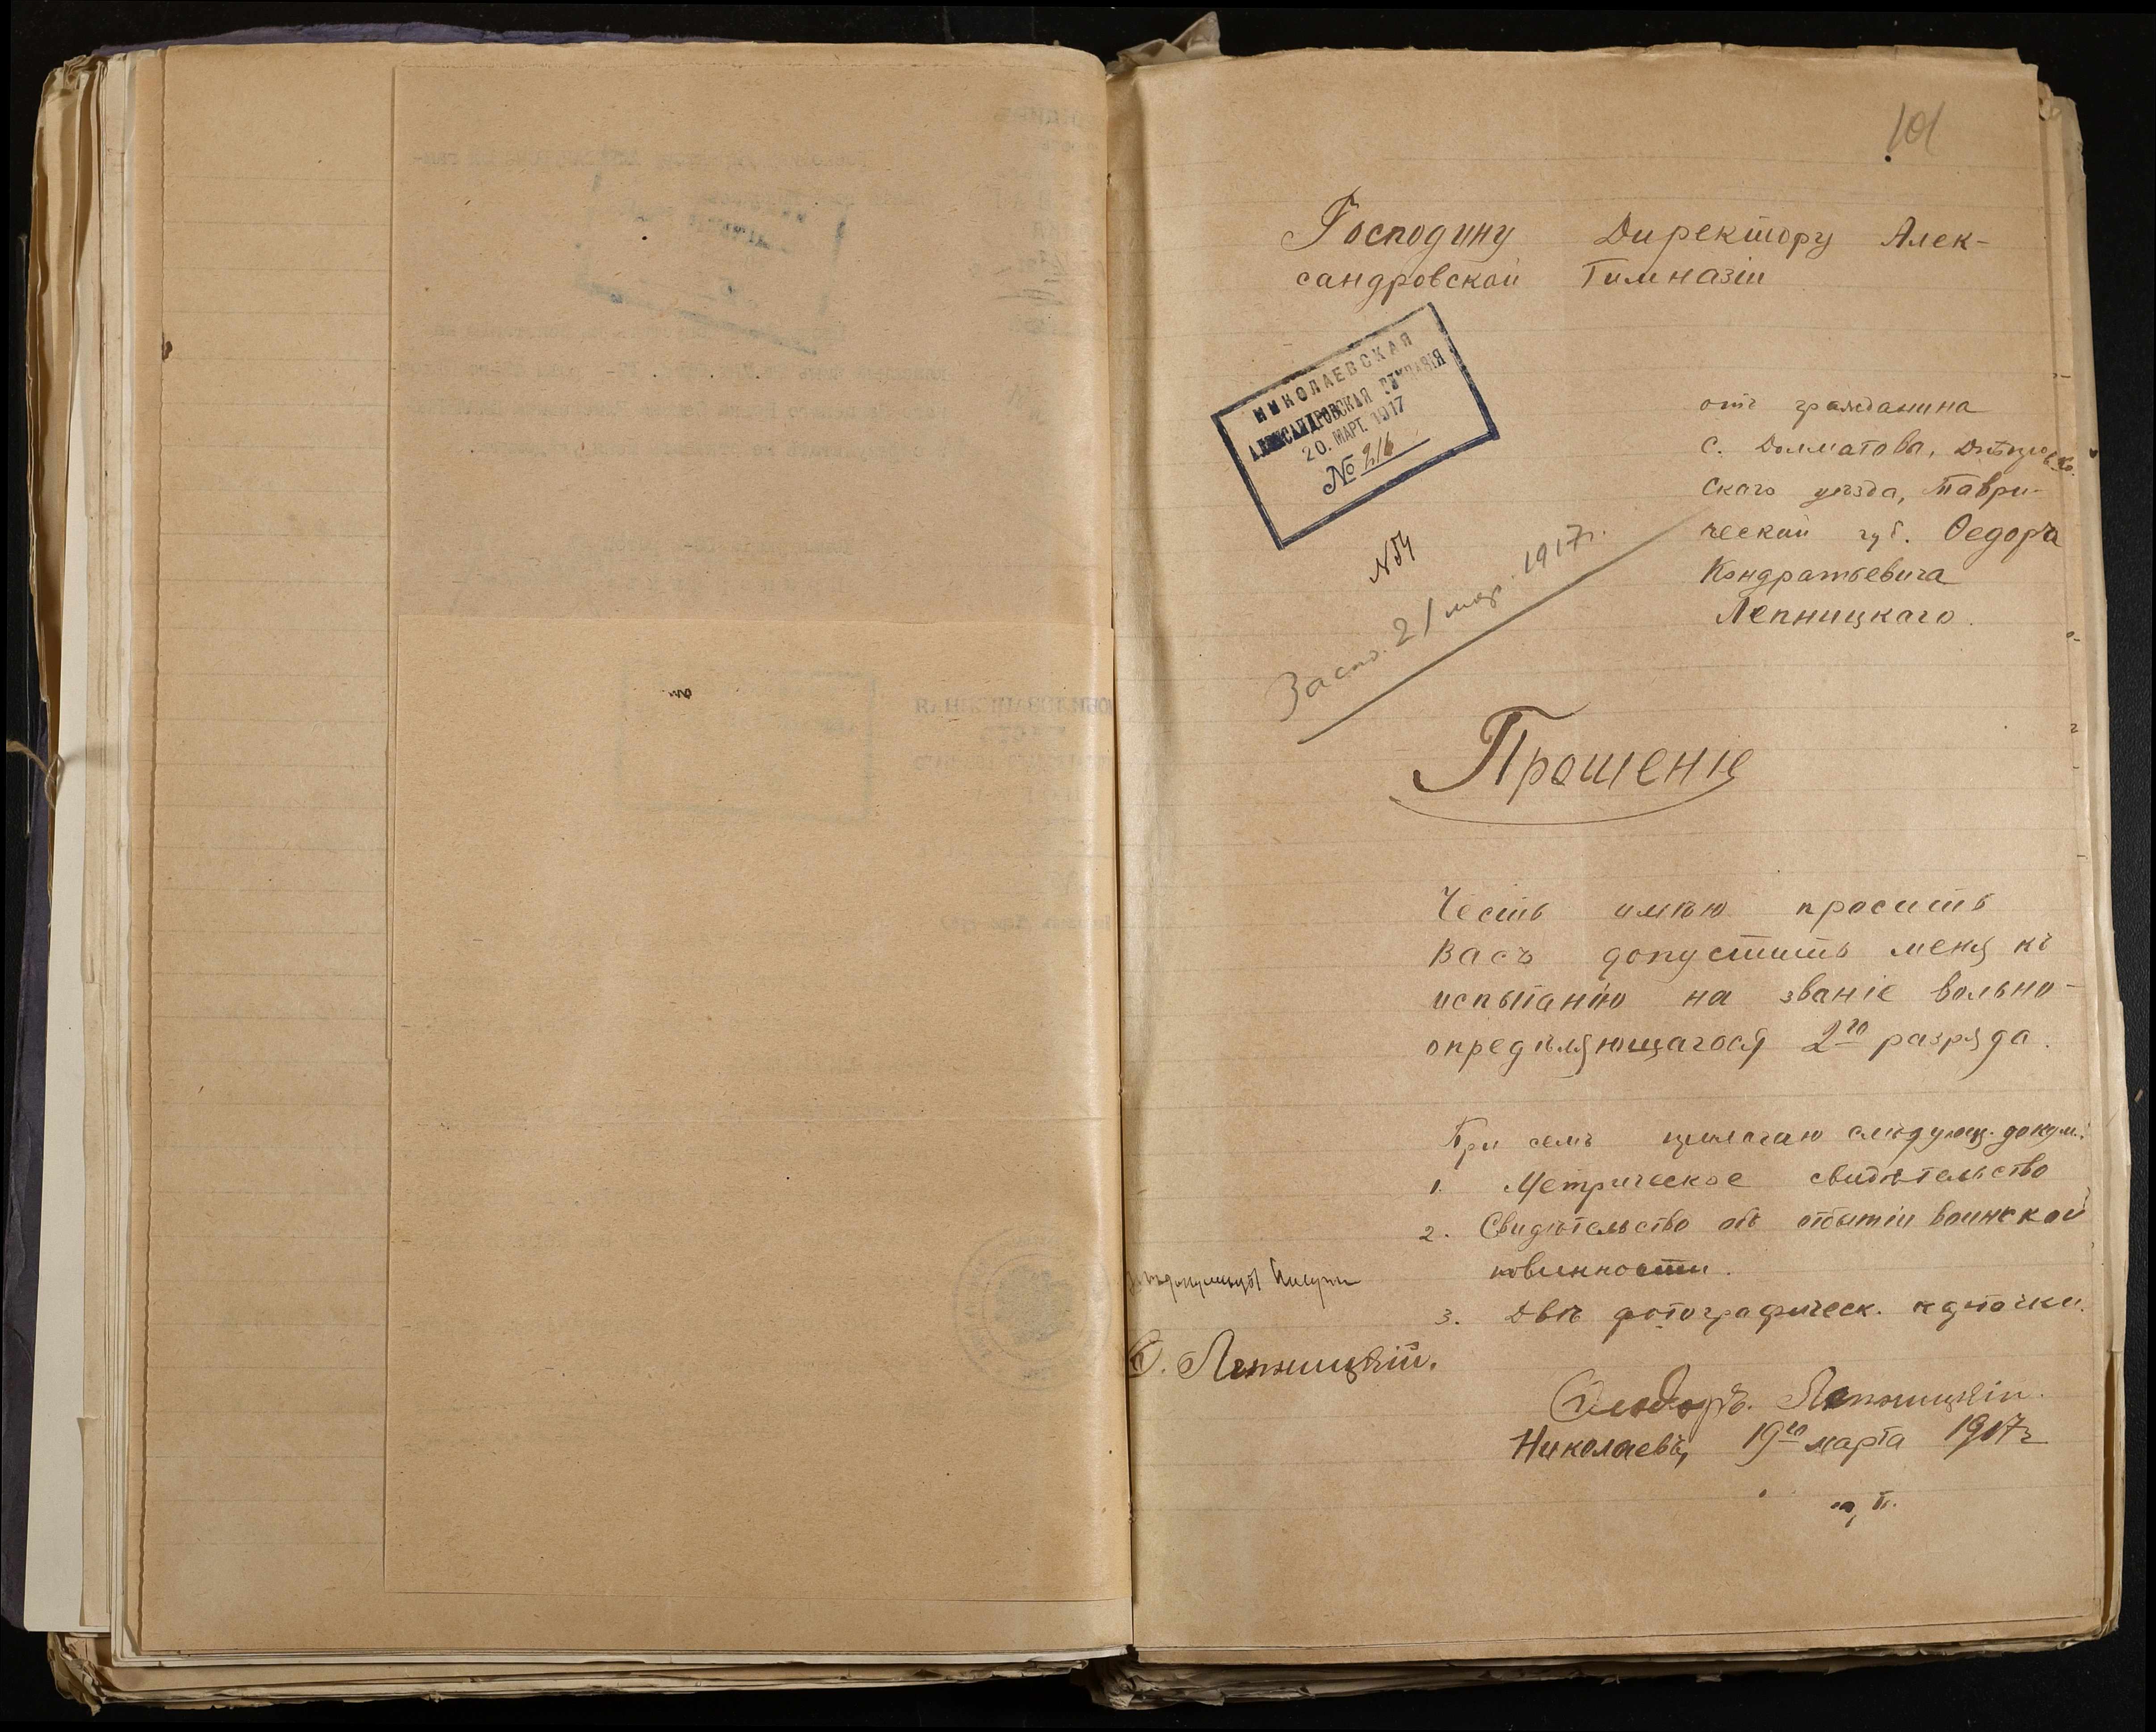 101
Господину Директору Алек-
сандровской Гимназіи
НИКОЛАЕВСКАЯ
АЛЕКСАНДРОВСКАЯ ГИМНАЗІЯ
20. МАРТ. 1917
№ 216
отъ гражданина
с. Долматова, Днѣпров-
скаго уѣзда, Таври-
ческой губ. Ѳедора
Кондратьевича
Лепницкаго.
№54
21 мар. 1917 г.
Прошеніе
Честь имѣю просить
Васъ допустить меня къ
испытанію на званіе вольно-
опредѣляющагося 2го разряда.
При семъ прилагаю слѣдующ. докум.:
1. Метрическое свидѣтельство
2. Свидѣтельство объ отбытіи воинской
повинности.
3. Двѣ фотографическ. карточки.
документы
Ѳ. Лепницкій.
Ѳеодоръ. Лепницкій.
Николаевъ, 19го марта 1917 г